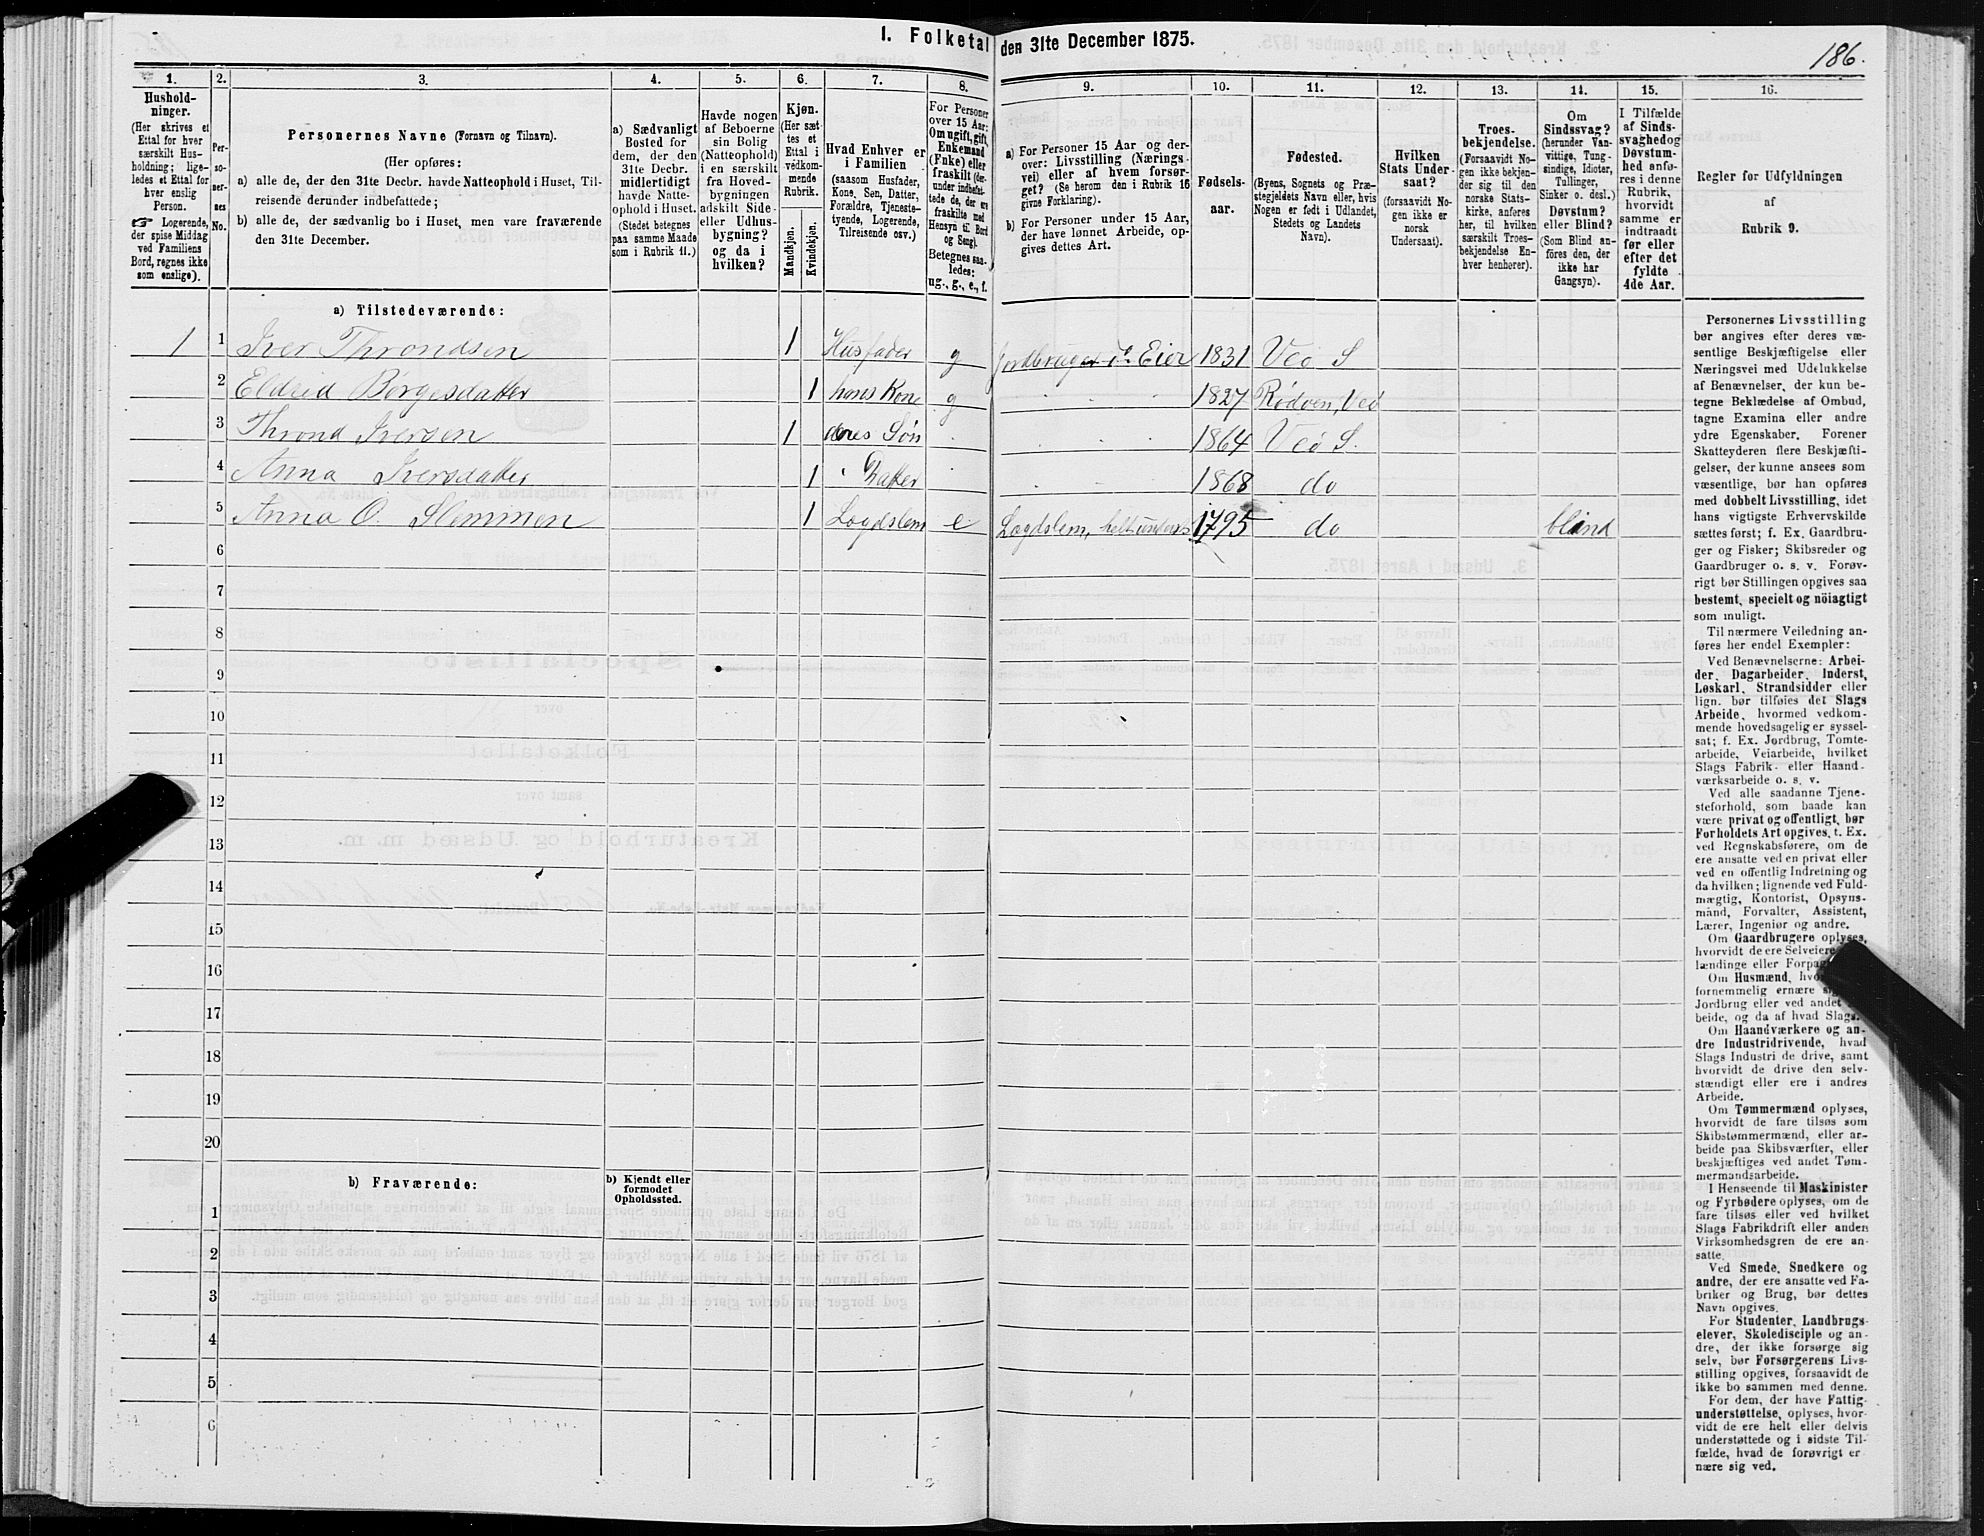 I. Folketal den 31te December 1875.
186.
1.
Hushold-
ninger.
(Her skrives et
Ettal for hver
særskilt Hus-
holdning; lige-
ledes et Ettal for
hver enslig
Person.
☞ Logerende,
der spise Middag
ved Familiens
Bord, regnes ikke
som enslige).
2.
Per-
so-
ner-
nes
No.
3.
Personernes Navne (Fornavn og Tilnavn).
(Her opføres:
a) alle de, der den 31te Decbr. havde Natteophold i Huset, Til-
reisende derunder indbefattede;
b) alle de, der sædvanlig bo i Huset, men vare fraværende
den 31te December.
4.
a) Sædvanligt
Bosted for
dem, der den
31te Decbr.
midlertidigt
havde Natte-
ophold i Huset.
(Stedet betegnes
paa samme Maade
som i Rubrik 11.)
5.
Havde nogen
af Beboerne
sin Bolig
(Natteophold)
i en særskilt
fra Hoved-
bygningen
adskilt Side-
eller Udhus-
bygning?
og da i
hvilken?
6.
Kjøn.
(Her sæt-
tes et
Ettal i
vedkom-
mende
Rubrik.
Mandkjøn.
Kvindekjøn.
7.
Hvad Enhver er
i Familien
(saasom Husfader,
Kone, Søn, Datter,
Forældre, Tjeneste-
tyende, Logerende,
Tilreisende osv.)
8.
For Personer
over 15 Aar:
Om ugift, gift,
Enkemand
(Enke) eller
fraskilt (der-
under indbefat-
tede de, der ere
fraskilte med
Hensyn til Bord
og Seng).
Betegnes saa-
ledes:
ug., g., e., f.
9.
a) For Personer 15 Aar og der-
over: Livsstilling (Nærings-
vei) eller af hvem forsør-
get? (Se herom den i Rubrik 16
givne Forklaring).
b) For Personer under 15 Aar,
der have lønnet Arbeide, op-
gives dettes Art.
10.
Fødsels-
aar.
11.
Fødested.
(Byens, Sognets og Præ-
stegjeldets Navn eller, hvis
Nogen er født i Udlandet,
Stedets og Landets
Navn).
12.
Hvilken
Stats Under-
saat?
(forsaavidt No-
gen ikke er
norsk
Undersaat).
13.
Troes-
bekjendelse.
(Forsaavidt No-
gen ikke bekjen-
der sig til den
norske Stats-
kirke, anføres
her, til hvilken
særskilt Troes-
bekjendelse En-
hver henhører).
14.
Om
Sindssvag?
(herunder Van-
vittige, Tung-
sindige, Idioter,
Tullinger,
Sinker o. desl.)
Døvstum?
eller Blind?
(Som Blind an-
føres den, der
ikke har
Gangsyn).
15.
I Tilfælde
af Sinds-
svaghed og
Døvstum-
hed anfø-
res i denne
Rubrik,
hvorvidt
samme er
indtraadt
før eller
efter det
fyldte
4de Aar.
16.
Regler for Udfyldningen
af
Rubrik 9.
a) Tilstedeværende:
1 1 Iver Throndsen 1 Husfader g Jordbruger do Eier 1831 Veø S
2 Eldrid Børgesdatter 1 hans Kone g 1827 Rødven, Veø
3 Thrond Iversen 1 deres Søn 1864 Veø S.
4 Anna Iversdatter 1 " Datter 1868 do
5 Anna O. Slemmen 1 Lægdslem e Lægdslem, helt underst 1795 do blind
6
7
8
9
10
11
12
13
14
15
16
17
18
19
20
b) Fraværende:
b) Kjendt eller
formodet
Opholdssted.
1
2
3
4
5
6
Personernes Livsstilling
bør angives efter deres væ-
sentlige Beskjæftigelse eller
Næringsvei med Udelukkelse
af Benævnelser, der kun be-
tegne Beklædelse af Ombud,
tagne Examina eller andre
ydre Egenskaber. Forener
Skatteyderen flere Beskjæfti-
gelser, der kunne ansees som
væsentlige, bør han opføres
med dobbelt Livsstilling, idet
hans vigtigste Erhvervskilde
sættes først; f. Ex. Gaardbru-
ger og Fisker; Skibsreder og
Gaardbruger o. s. v. Forøv-
rigt bør Stillingen opgives saa
bestemt, specielt og nöiagtigt
som muligt.
Til nærmere Veiledning an-
føres her endel Exempler:
Ved Benævnelserne: Arbei-
der, Dagarbeider, Inderst,
Løskarl, Strandsidder eller
lign. bør tilføies det Slags
Arbeide, hvormed vedkom-
mende hovedsagelig er syssel-
sat; f. Ex. Jordbrug, Tomte-
arbeide, Veiarbeide, hvilket
Slags Fabrik- eller Haand-
værksarbeide o. s. v.
Ved alle saadanne Tjene-
steforhold, som baade kan
være privat og offentligt, bør
Forholdets Art opgives, t. Ex.
ved Regnskabsførere, om de
ere ansatte ved en privat eller
ved en offentlig Indretning og
da hvilken; lignende ved Fuld-
mægtig, Kontorist, Opsyns-
mand, Forvalter, Assistent,
Lærer, Ingeniør og andre.
Om Gaardbrugere oplyses,
hvorvidt de ere Selveiere
lændinge eller
Om Husmænd,
fornemmelig ernære
Jordbrug eller ved andet
beide, og da af hvad Slags.
Om Haandværkere og an-
dre Industridrivende, hvad
Slags Industri de drive, samt
hvorvidt de drive den selv-
stændigt eller ere i andres
Arbeide.
Om Tømmermænd oplyses,
hvorvidt de fare tilsøs som
Skibstømmermænd, eller ar-
beide paa Skibsværfter, eller
beskjæftiges ved andet Tøm-
mermandsarbeide.
I Henseende til Maskinister
og Fyrbødere oplyses, om de
fare tilsøs eller ved hvilket
Slags Fabrikdrift eller anden
Virksomhedsgren de ere an-
satte.
Ved Smede, Snedkere og
andre, der ere ansatte ved Fa-
briker og Brug, bør dettes
Navn opgives.
For Studenter, Landbrugs-
elever, Skoledisciple og an-
dre, der ikke forsørge sig
selv, bør Forsørgerens Livs-
stilling opgives, forsaavidt de
ikke bo sammen med denne.
For dem, der have Fattig-
understøttelse, oplyses, hvor-
vidt de ere helt eller delvis
understøttede og i sidste Til-
fælde, hvad de forøvrigt er-
nære sig ved.